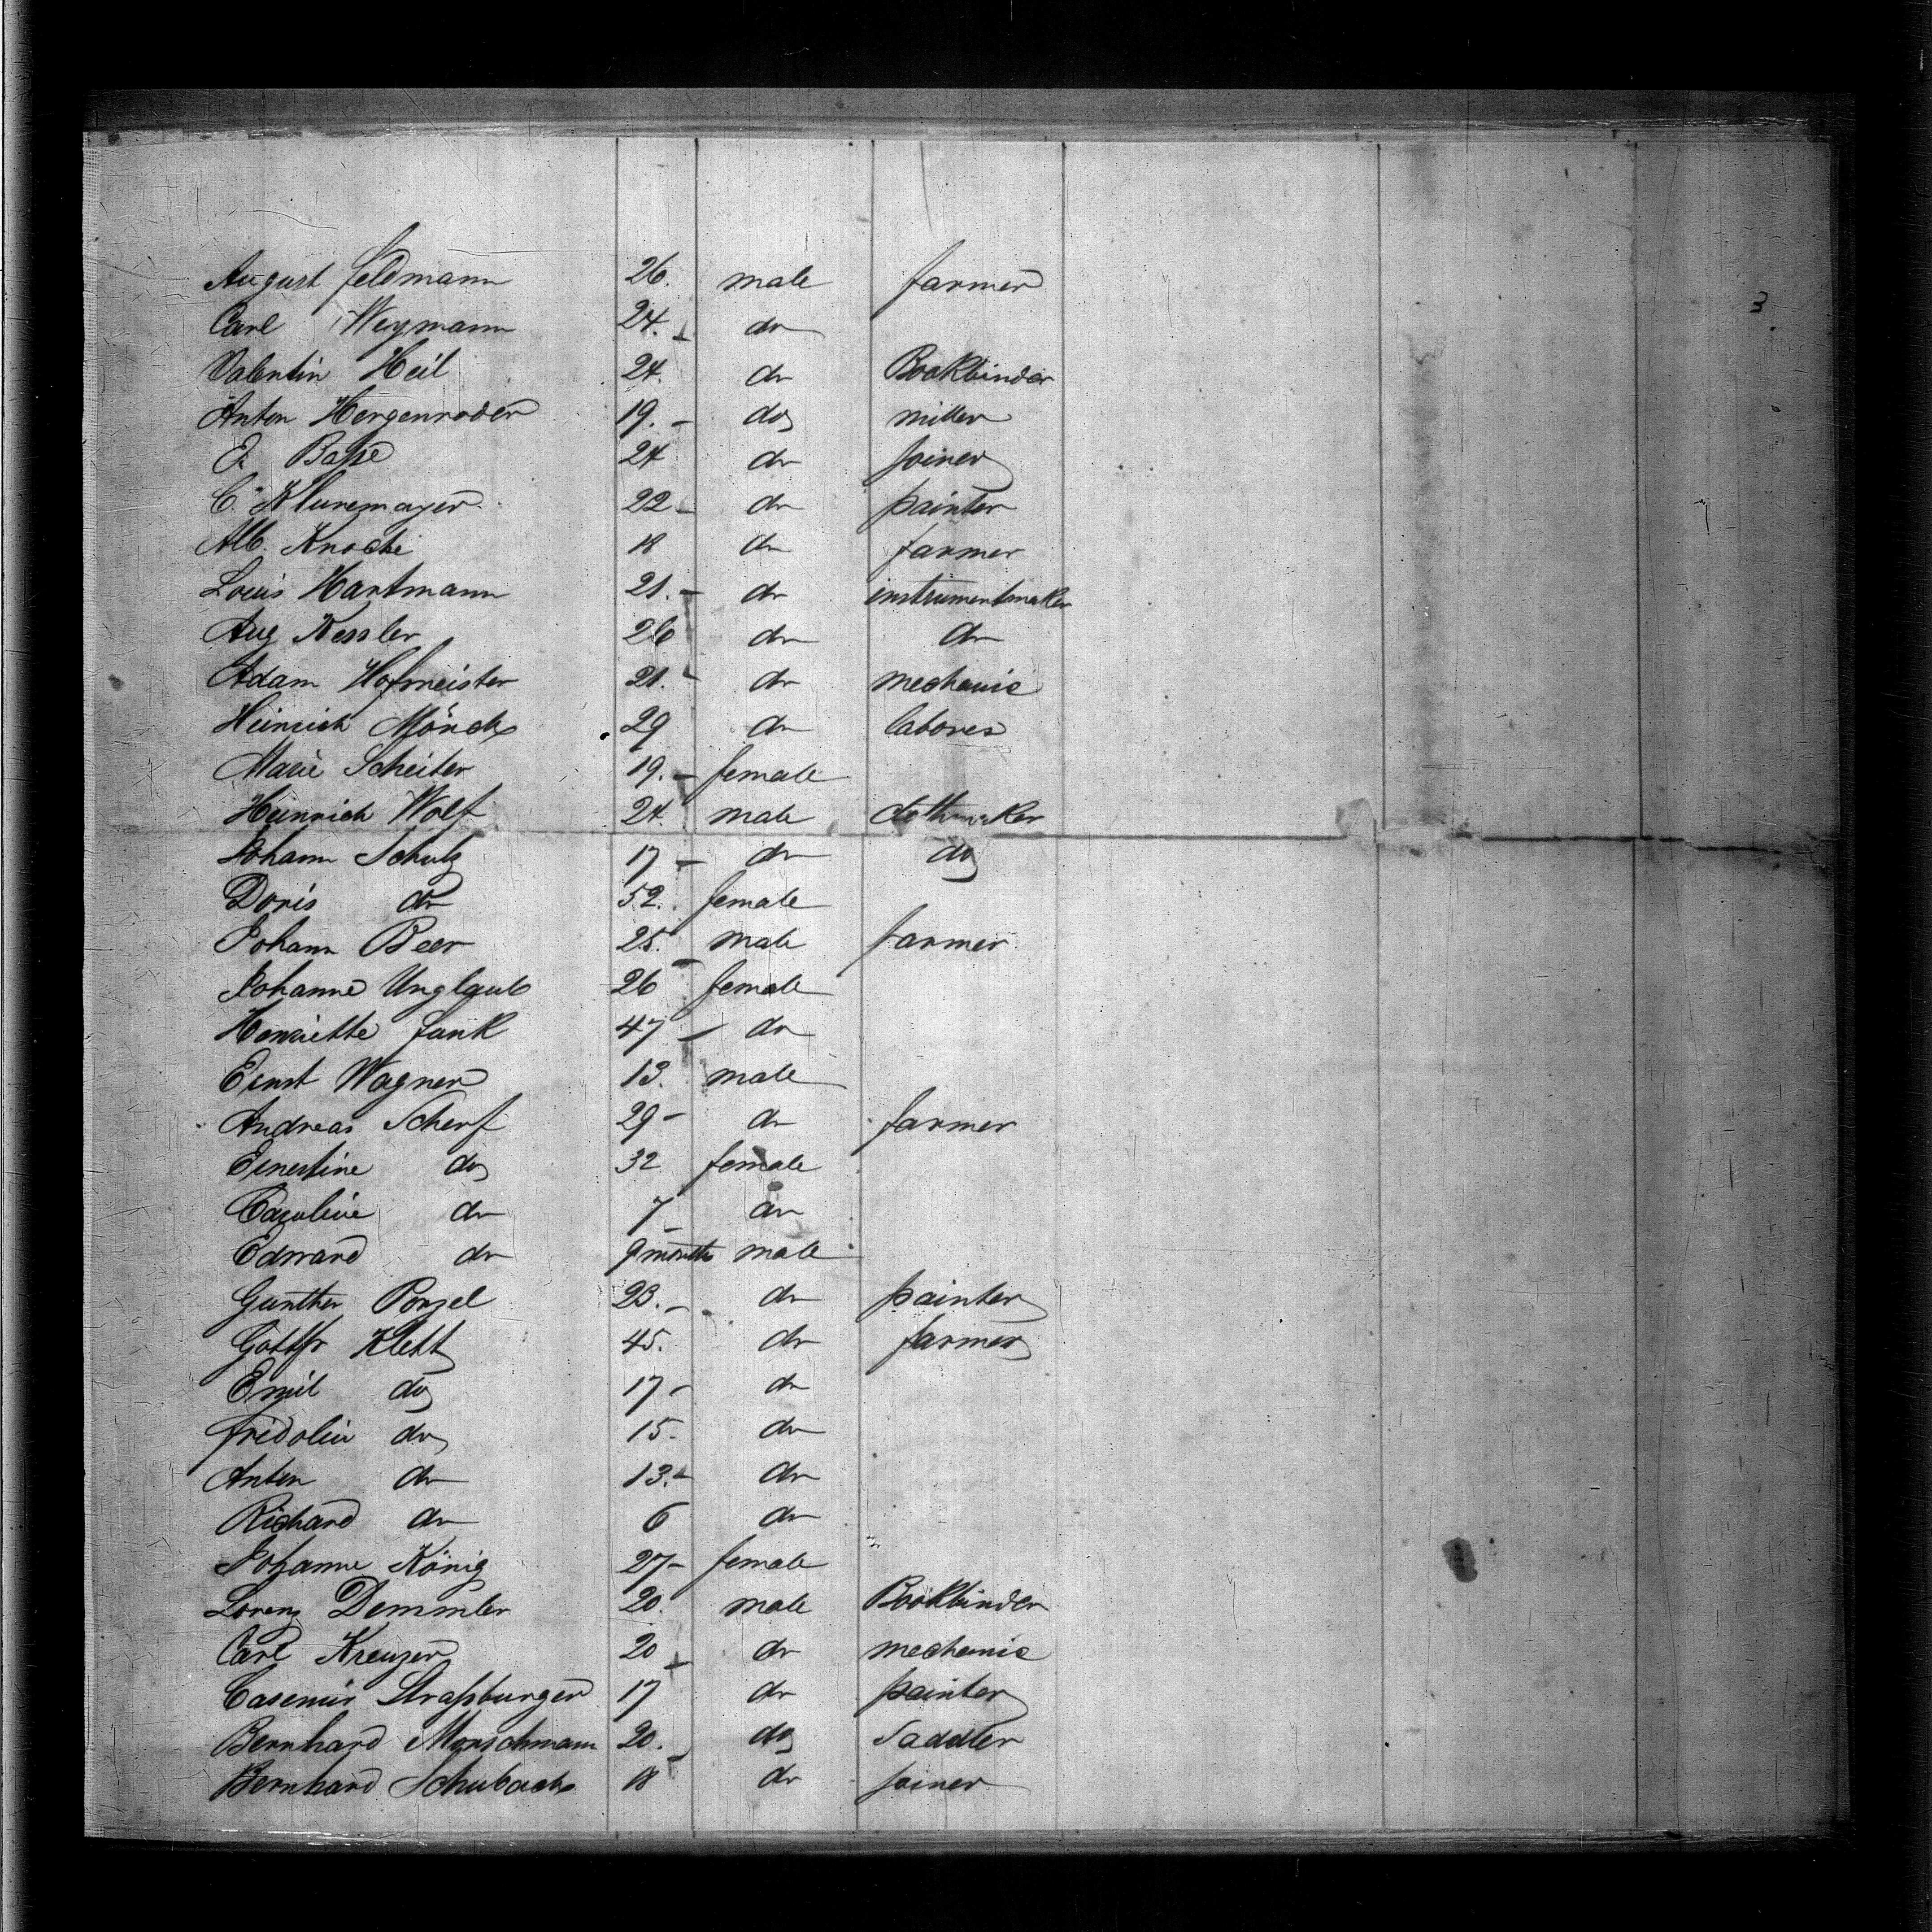 August Feldmann 26. male farmer
Carl Weymann 24. do 3
Valentin Heil 24. do Bookbinder
Anton Hergenroder 19. – do miller
E. Baße 24 do joiner
C. 22 – do painter
Alb. Knoche 18 do farmer
Louis Hartmann 21. – do instrumentmaker
Aug Kessler 26 do do
Adam Hofmeister 21. – do mechanic
Heinrich Mönch 29 do labores
Marie Scheiter 19. – female
Heinrich Wolf 24. male clothmaker
Johann Schulz 17 – do do
Doris do 52. female
Johann Beer 25. male farmer
Johanne Unglaub 26 – female
Henriette Funk 47 – do
Ernst Wagner 13. male
Andreas Scherf 29 – do farmer
Ernestine do 32 female
Caroline do 7 do
Edward do 9 months male
Gunther Porzel 23. – do painter
Gottfr Klett 45. do farmer
Emil do 17 – do
Fridolin do 15. do
Anton do 13. – do
Richard do 6 do
Johanne König 27 – female
Lorenz Demmler 20. male Bookbinder
Carl Kreuzer 20 – do mechanic
Casemir Straßburger 17 do painter
Bernhard Morschmann 20. – do Saddler
Bernhard Schubach 18 do joiner